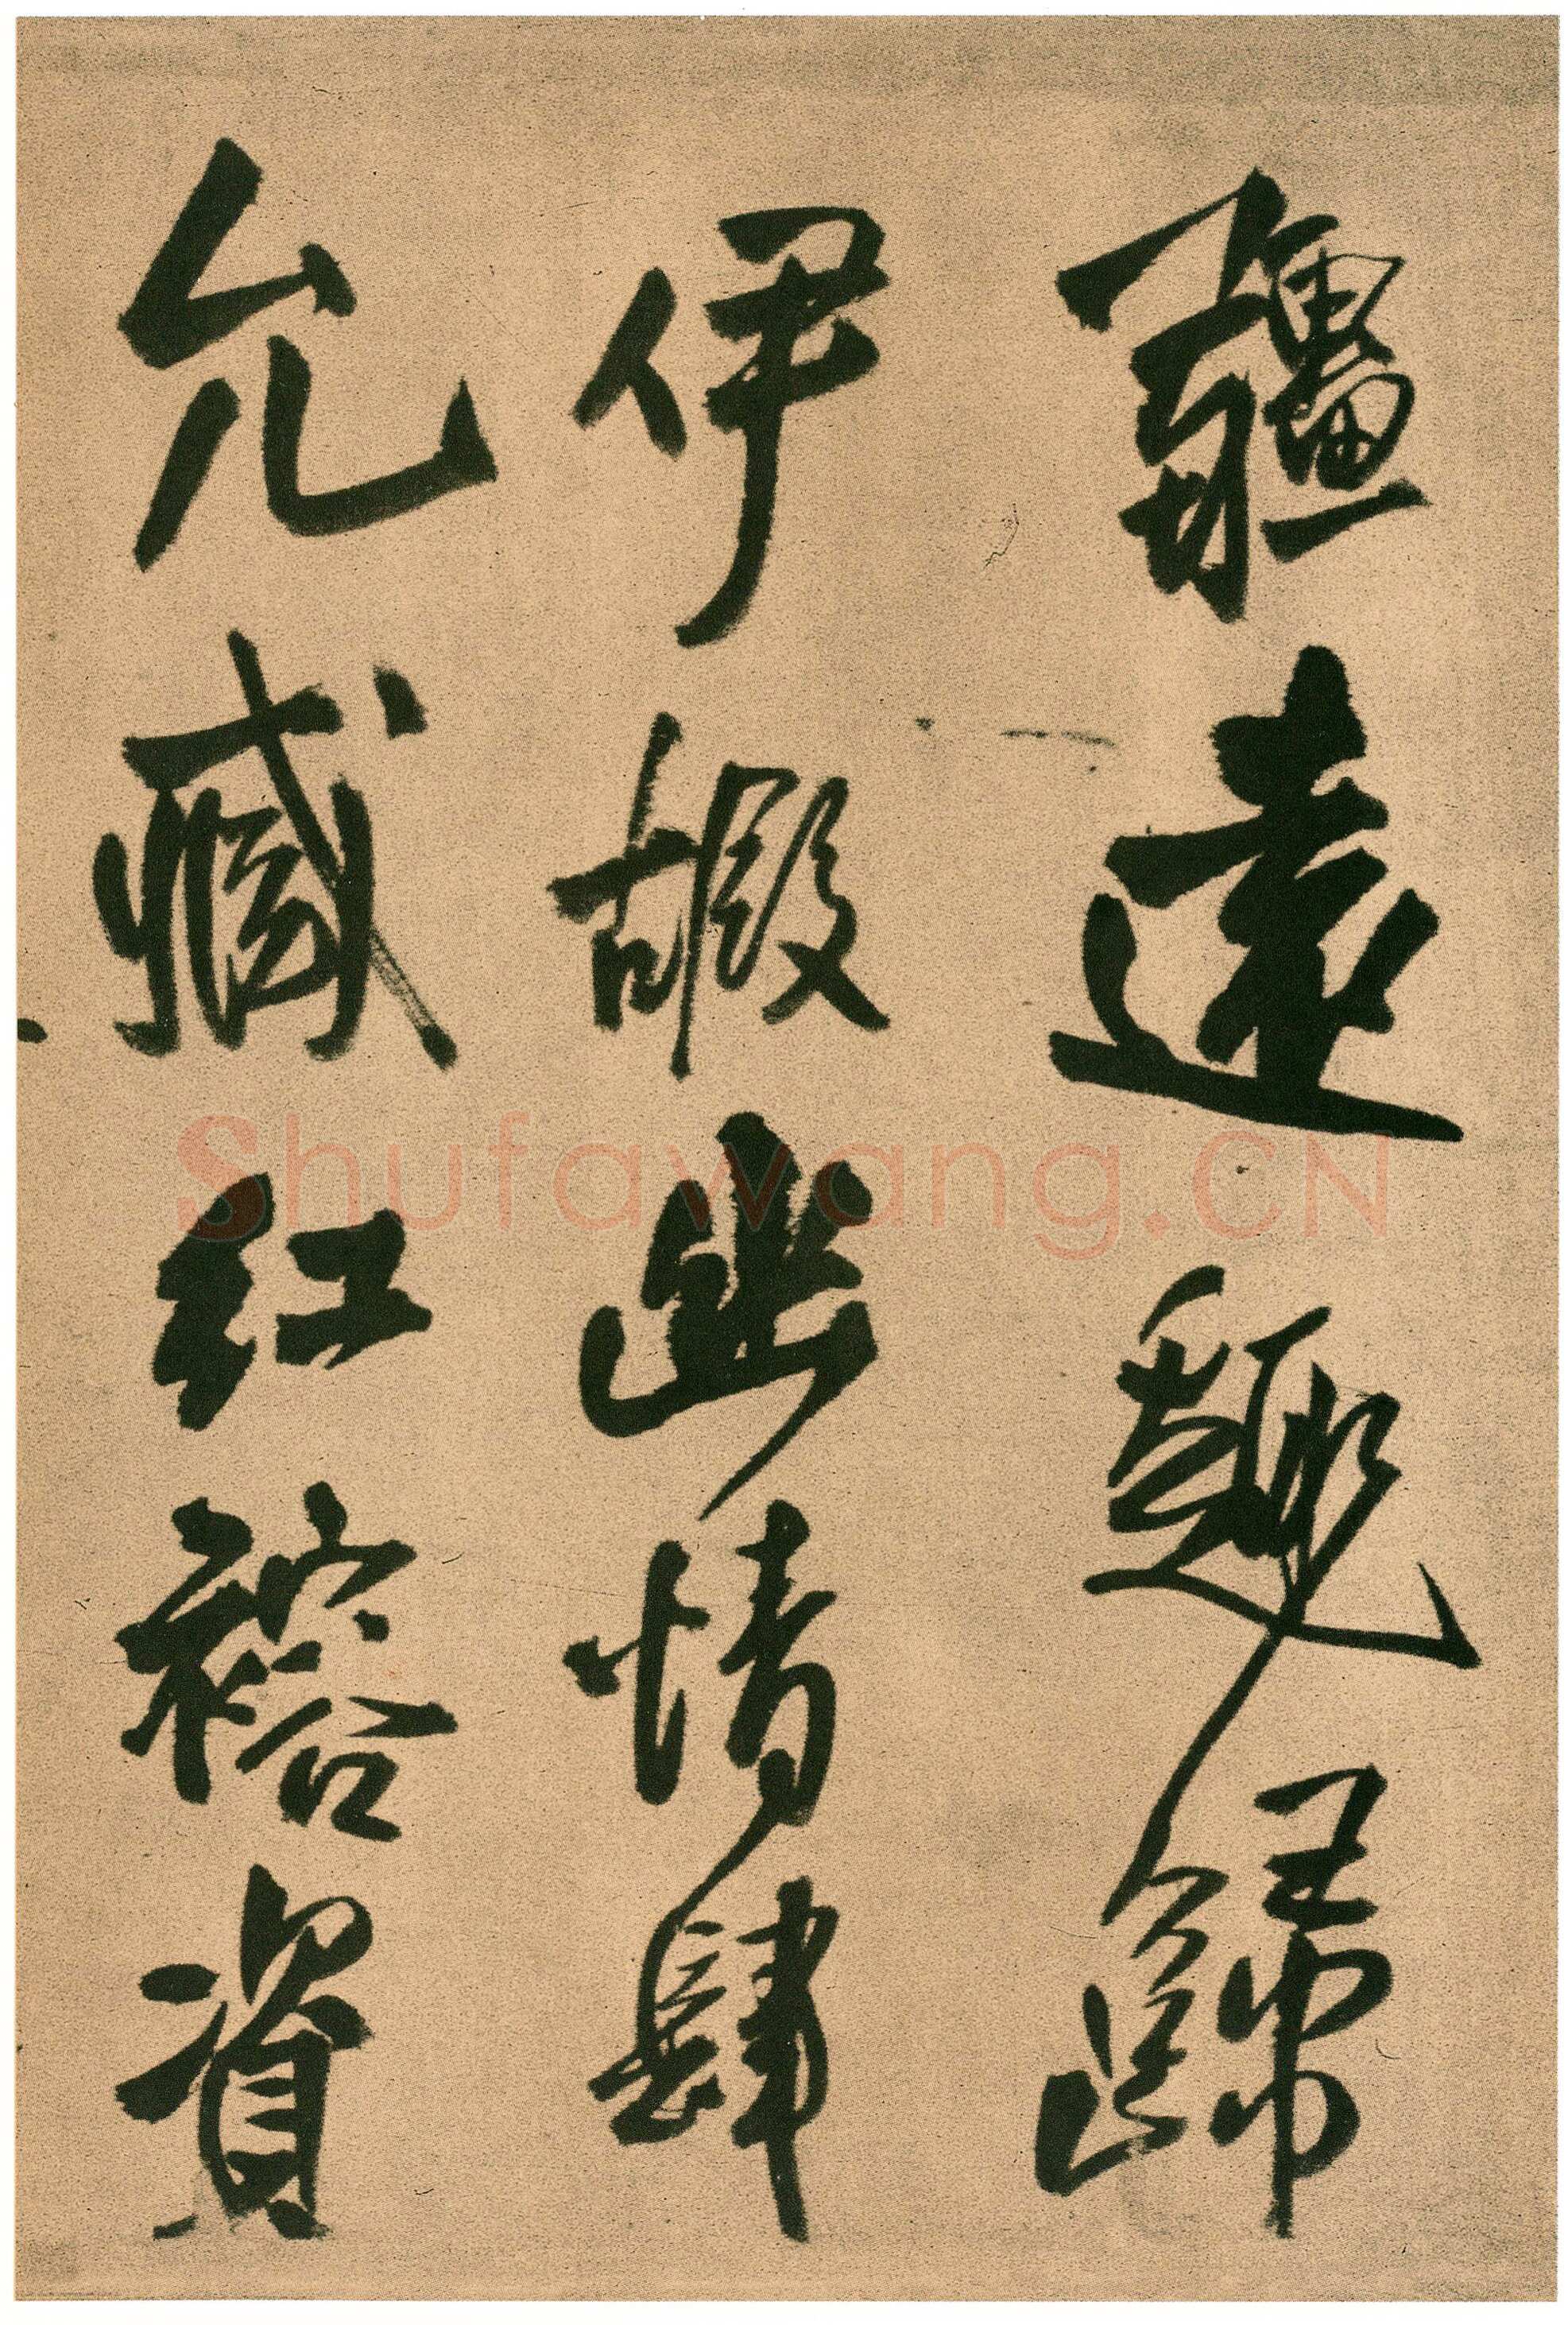 疆遠趣歸
伊嘏幽情肆
允臧紅裕資
Shufawang.CN